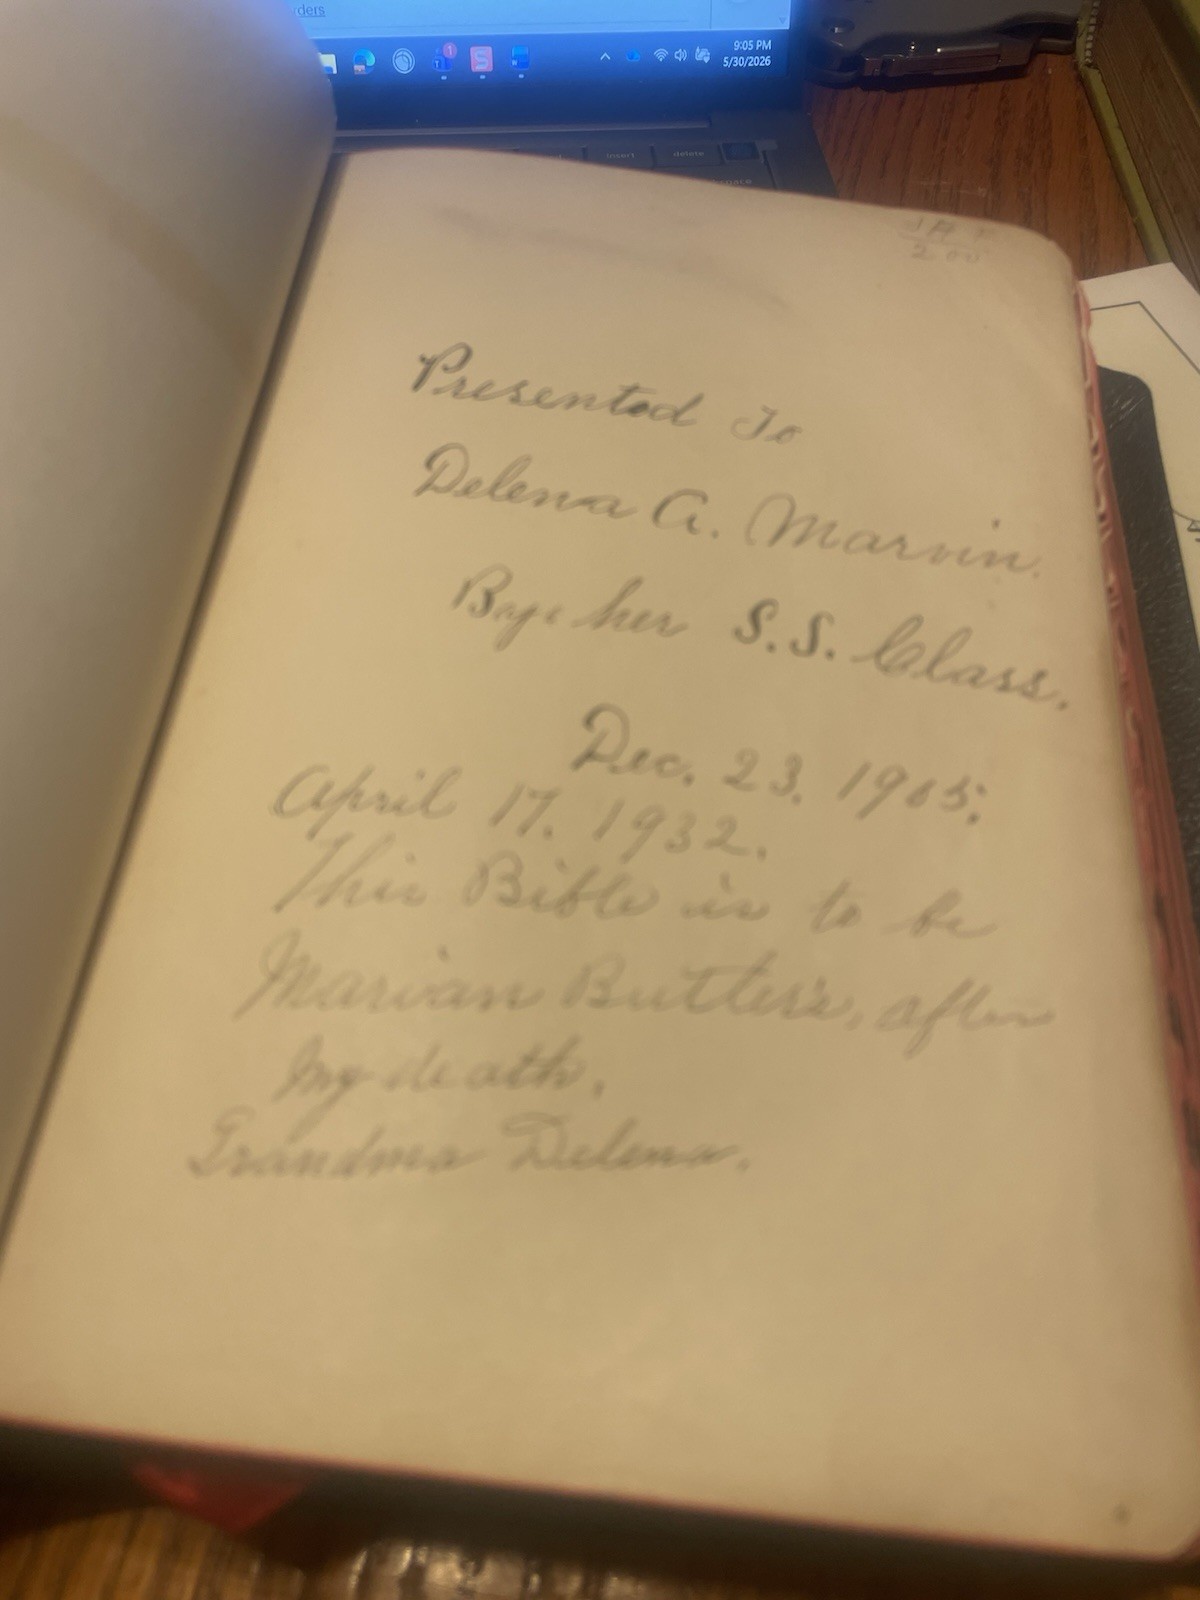 rders
9:05 PM
5/30/2026
insert
delete
2 00
Presented To
Delena A. Marvin.
By her S.S. Class.
Dec. 23. 1905.
April 17. 1932.
This Bible is to be
Marian Butler's, after
my death.
Grandma Delena.